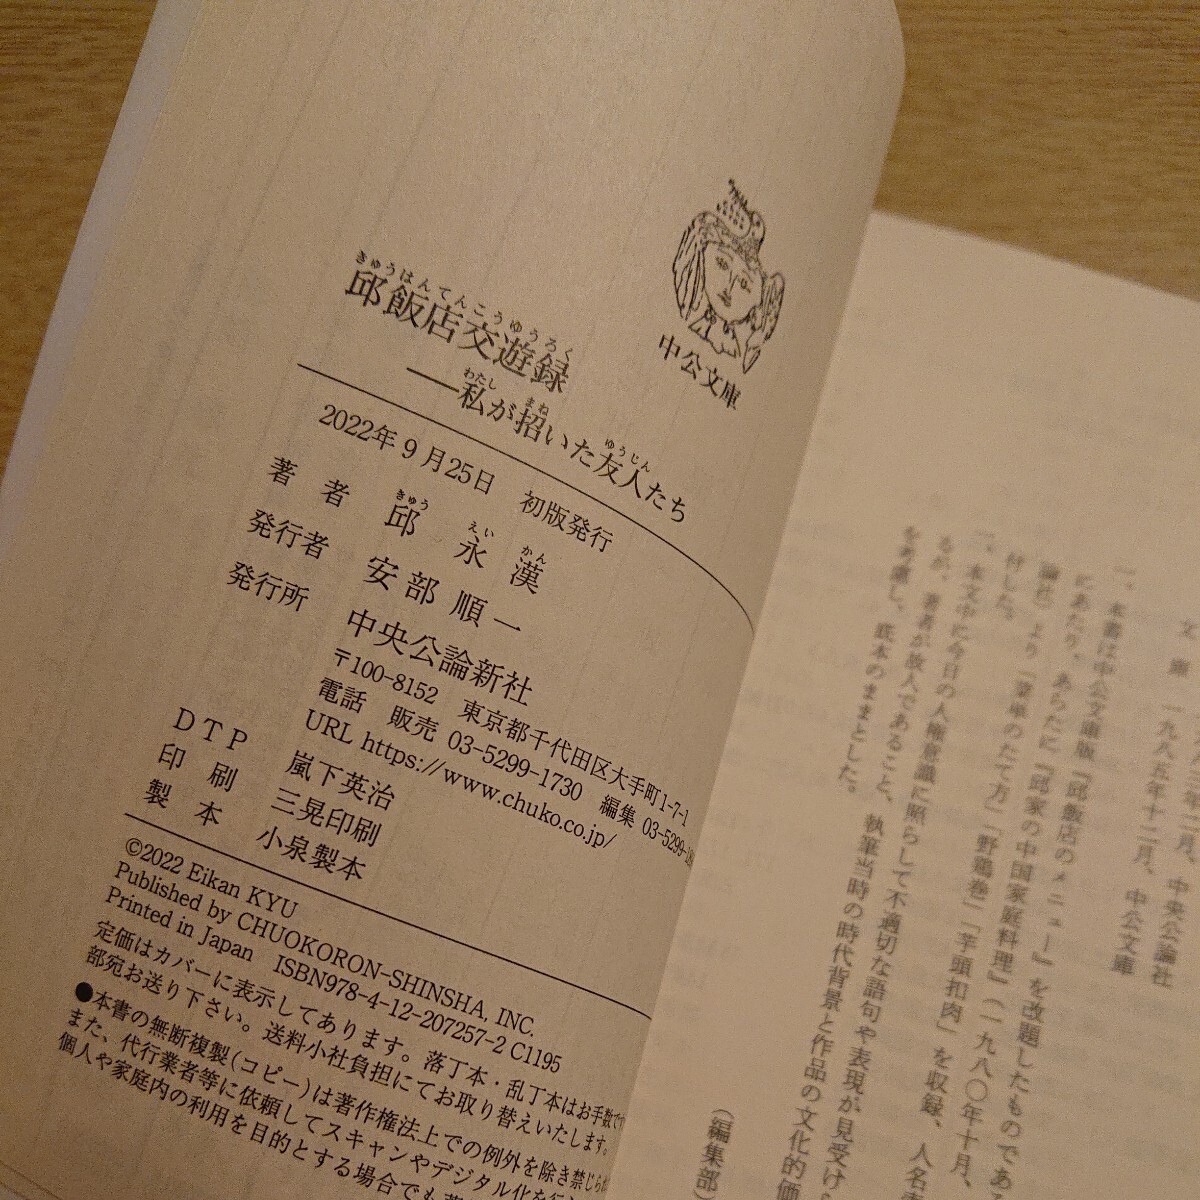 中公文庫
きゅうはんてんこうゆうろく
邱飯店交遊録
わたし まね ゆうじん
——私が招いた友人たち
2022年9月25日 初版発行
きゅう えい かん
著者 邱 永 漢
発行者 安部順一
発行所 中央公論新社
〒100-8152 東京都千代田区大手町1-7-1
電話 販売 03-5299-1730 編集 03-5299-
URL https://www.chuko.co.jp/
DTP 嵐下英治
印刷 三晃印刷
製本 小泉製本
©2022 Eikan KYU
Published by CHUOKORON-SHINSHA, INC.
Printed in Japan ISBN978-4-12-207257-2 C1195
定価はカバーに表示してあります。落丁本・乱丁本はお手数です
部宛お送り下さい。送料小社負担にてお取り替えいたします。
●本書の無断複製(コピー)は著作権法上での例外を除き禁じられ
また、代行業者等に依頼してスキャンやデジタル化を行
個人や家庭内の利用を目的とする場合でも
文庫 一九八五年十二月、中公文庫
年二月、中央公論社
一、本書は中公文庫版『邱飯店のメニュー』を改題したものであ
にあたり、あらたに『邱家の中国家庭料理』(一九八〇年十月、
論社)より「菜単のたて方」「野鶏巻」「芋頭扣肉」を収録、人名
付した。
一、本文中に今日の人権意識に照らして不適切な語句や表現が見受け
るが、著者が故人であること、執筆当時の時代背景と作品の文化的価
を考慮し、底本のままとした。
(編集部)